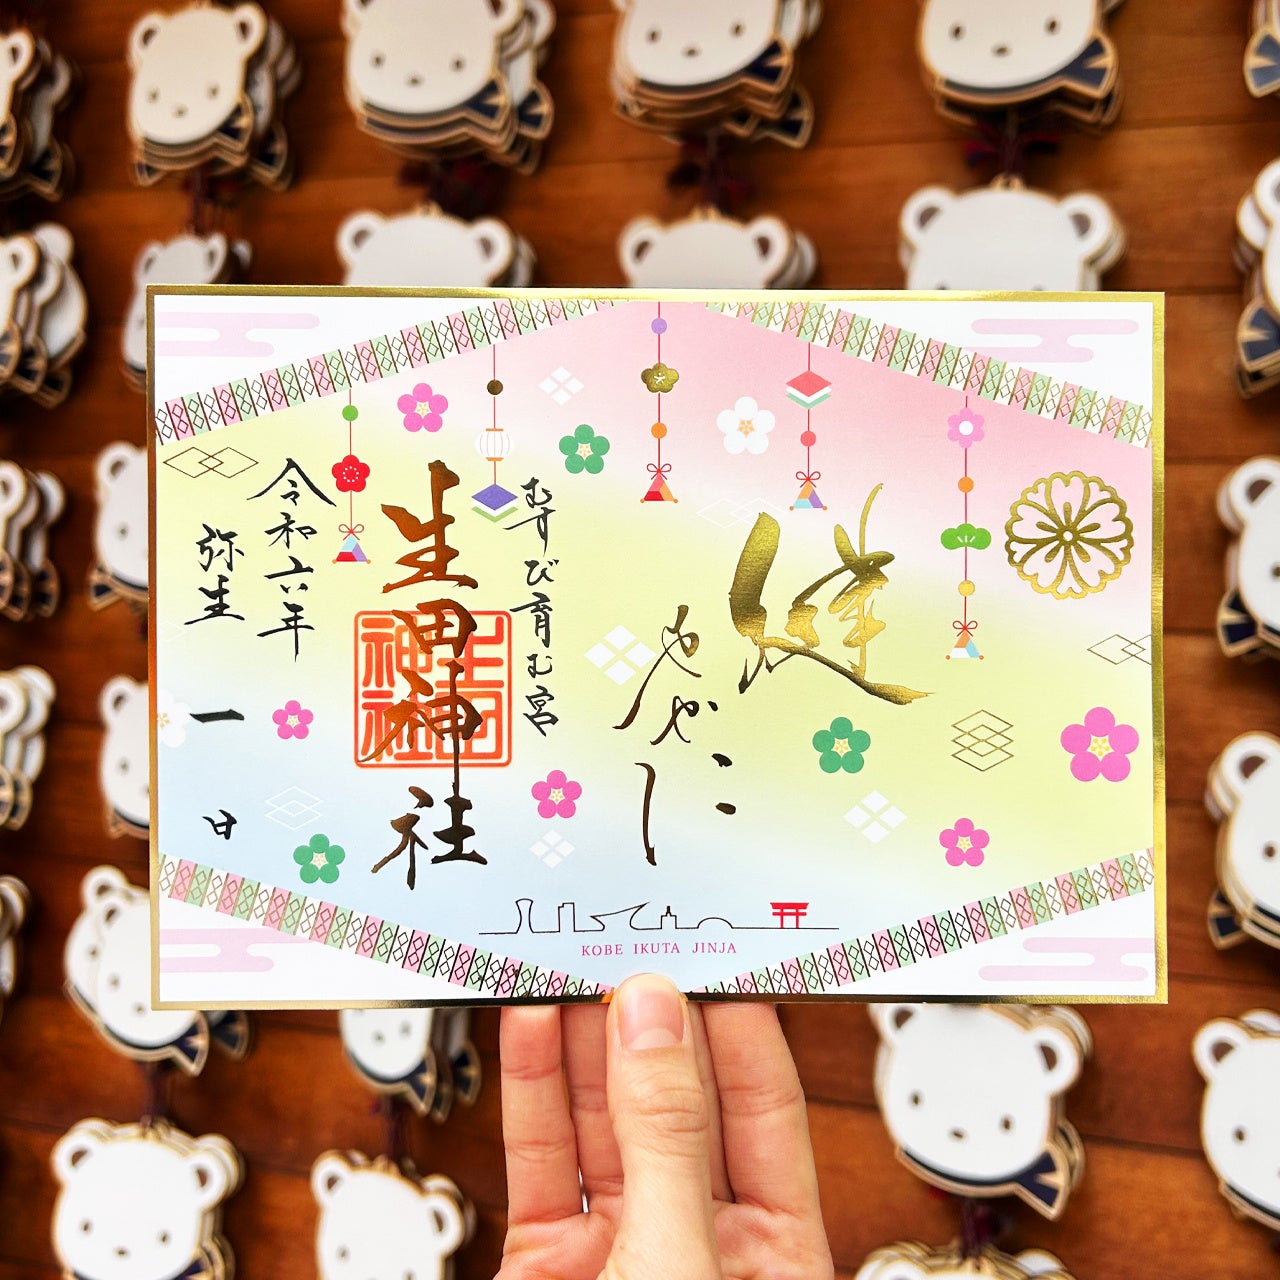 健
やかに
むすび育む宮
生田神社
生田神社
令和六年
弥生
一
日
KOBE IKUTA JINJA